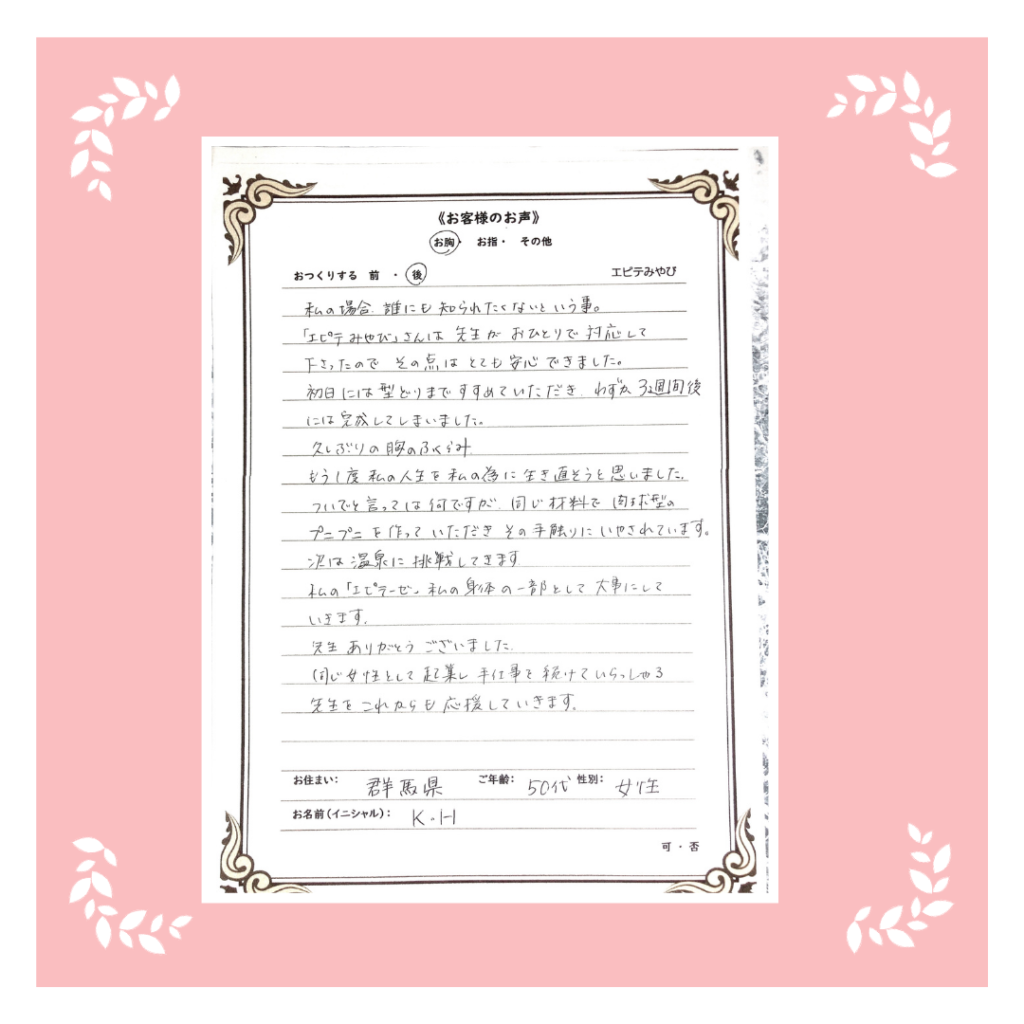 《お客様のお声》
お胸・ お指・ その他
おつくりする 前 ・ 後 エピテみやび
私の場合、誰にも知られたくないという事。
「エピテみやび」さんは 先生が おひとりで 対応して
下さったので その点は とても 安心できました。
初日には型どりまですすめていただき、わずか 3週間後
には完成してしまいました。
久しぶりの胸のふくらみ
もう1度 私の人生を 私の為に 生き直そうと思いました。
ついでと言っては何ですが、同じ材料で 肉球型の
プニプニを作って いただき その手触りに いやされています。
次は 温泉に 挑戦してきます
私の「エピテーゼ」私の身体の一部として 大事にして
いきます。
先生 ありがとう ございました。
同じ女性として 起業し 手仕事を 続けていらっしゃる
先生を これからも 応援していきます。
お住まい: 群馬県 ご年齢: 50代 性別: 女性
お名前(イニシャル): K・H
可 ・ 否